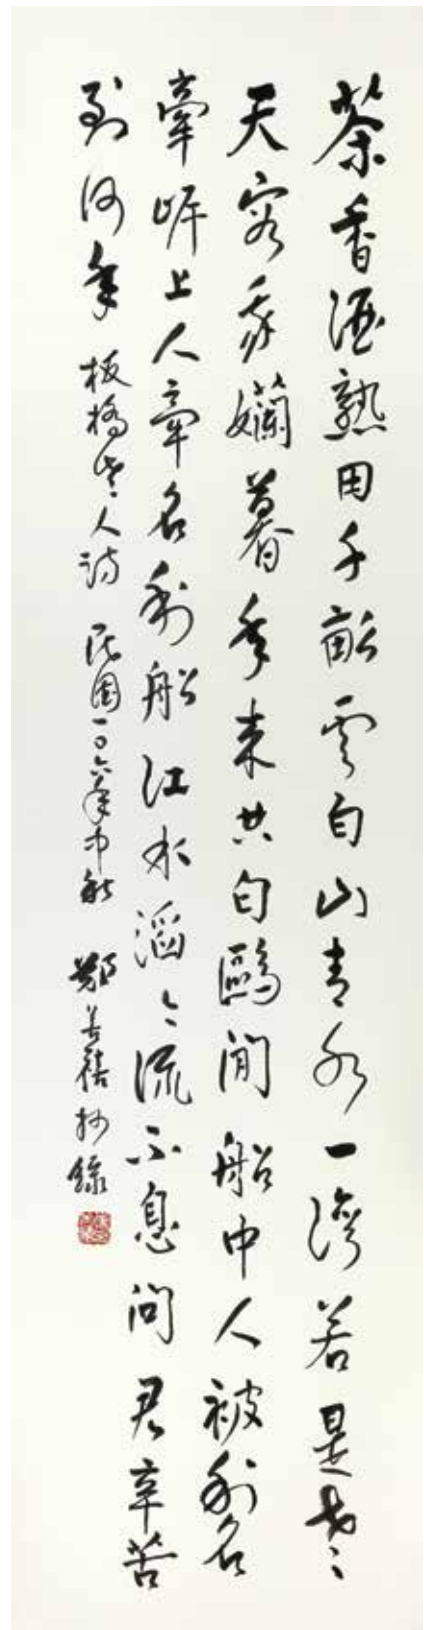 茶香酒熟田千畝雲白山青水一灣若是老
天容我孏暮年來共白鷗閒船中人被利名
牽岸上人牽名利船江水滔〻流不息問君辛苦
到何年 板橋老人詩 民國一〇六年中秋 鄭善禧抄錄